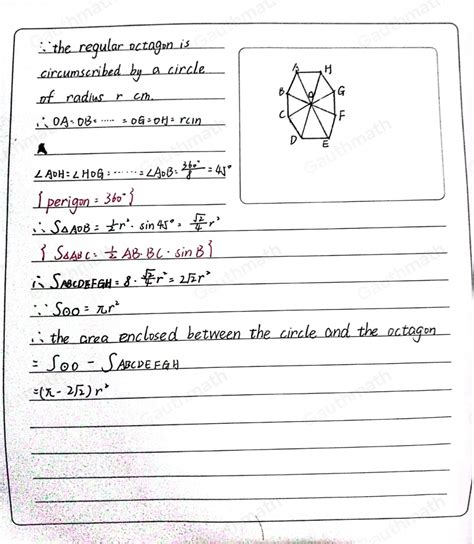 ∵ the regular octagon is
circumscribed by a circle
of radius r cm.
∴ OA=OB=······=OG=OH=rcm
∠AOH=∠HOG=······=∠AOB=360°/8=45°
{perigon=360°}
∴ S△AOB=1/2r²·sin45°=√2/4r²
{S△ABC=1/2AB·BC·sinB}
∴ SABCDEFGH=8·√2/4r²=2√2r²
∵ S⊙O=πr²
∴ the area enclosed between the circle and the octagon
=S⊙O-SABCDEFGH
=(π-2√2)r²
A H
B O G
C F
D E
Gauthmath
Gauthmath
Gauthmath
Gauthmath